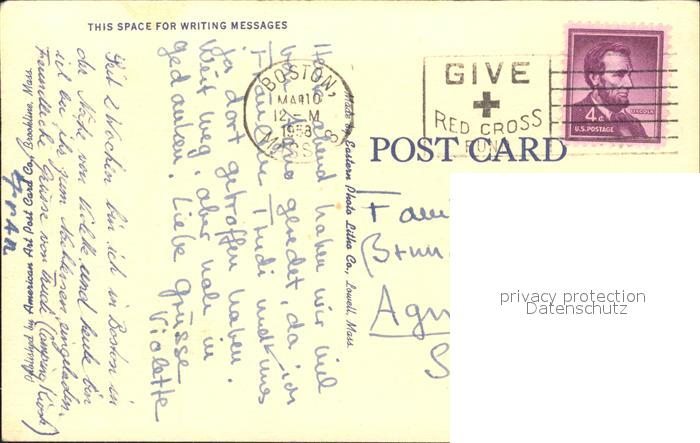 THIS SPACE FOR WRITING MESSAGES
Heute Abend haben wir viel
von geredet, da ich
Fräulein Trudi und uns
ja dort getroffen haben.
Weit weg, aber nahe in
Gedanken. Liebe Grüsse
Violette
Seit 2 Wochen bin ich in Boston in
die Nähe von und heute bin
ich bei ihr zum Nachtessen eingeladen.
Freundliche Grüsse von (Camping Kiosk)
Published by American Art Post Card Co., Brookline, Mass.
BOSTON,
MAR 10
12 - M
1958
MASS.
GIVE
RED CROSS
FUND
4¢
LINCOLN
U.S. POSTAGE
POST CARD
Made by Eastern Photo Litho Co., Lowell, Mass.
Fam
(Brun
Agn
S
privacy protection
Datenschutz